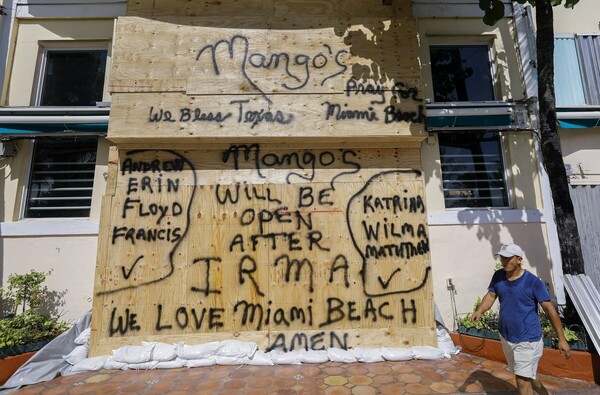 Mango's
We Bless Texas
Pray for
Miami Beach
Mango's
Will Be
Open
After
Irma
Andrew
Erin
Floyd
Francis
✓
Katrina
Wilma
Matthew
✓
We Love Miami Beach
Amen